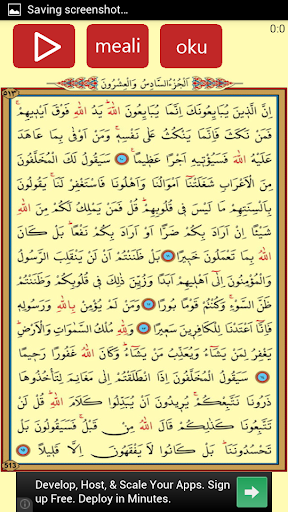 Saving screenshot...
meali
oku
0:0
٥١٣ اَلْجُزْءُ السَّادِسُ وَالْعِشْرُونَ
اِنَّ الَّذِينَ يُبَايِعُونَكَ اِنَّمَا يُبَايِعُونَ اللّٰهَۜ يَدُ اللّٰهِ فَوْقَ اَيْدِيهِمْۚ
فَمَنْ نَكَثَ فَاِنَّمَا يَنْكُثُ عَلٰى نَفْسِهِۚ وَمَنْ اَوْفٰى بِمَا عَاهَدَ
عَلَيْهُ اللّٰهَ فَسَيُؤْتِيهِ اَجْرًا عَظِيمًا ١٠ سَيَقُولُ لَكَ الْمُخَلَّفُونَ
مِنَ الْاَعْرَابِ شَغَلَتْنَا اَمْوَالُنَا وَاَهْلُونَا فَاسْتَغْفِرْ لَنَاۚ يَقُولُونَ
بِاَلْسِنَتِهِمْ مَا لَيْسَ فِي قُلُوبِهِمْۜ قُلْ فَمَنْ يَمْلِكُ لَكُمْ مِنَ اللّٰهِ
شَيْئًا اِنْ اَرَادَ بِكُمْ ضَرًّا اَوْ اَرَادَ بِكُمْ نَفْعًاۜ بَلْ كَانَ
اللّٰهُ بِمَا تَعْمَلُونَ خَبِيرًا ١١ بَلْ ظَنَنْتُمْ اَنْ لَنْ يَنْقَلِبَ الرَّسُولُ
وَالْمُؤْمِنُونَ اِلٰى اَهْلِيهِمْ اَبَدًا وَزُيِّنَ ذٰلِكَ فِي قُلُوبِكُمْ وَظَنَنْتُمْ
ظَنَّ السَّوْءِۚ وَكُنْتُمْ قَوْمًا بُورًا ١٢ وَمَنْ لَمْ يُؤْمِنْ بِاللّٰهِ وَرَسُولِهِ
فَاِنَّا اَعْتَدْنَا لِلْكَافِرِينَ سَعِيرًا ١٣ وَلِلّٰهِ مُلْكُ السَّمٰوَاتِ وَالْاَرْضِۜ
يَغْفِرُ لِمَنْ يَشَاءُ وَيُعَذِّبُ مَنْ يَشَاءُۜ وَكَانَ اللّٰهُ غَفُورًا رَحِيمًا
١٤ سَيَقُولُ الْمُخَلَّفُونَ اِذَا انْطَلَقْتُمْ اِلٰى مَغَانِمَ لِتَأْخُذُوهَا
ذَرُونَا نَتَّبِعْكُمْۚ يُرِيدُونَ اَنْ يُبَدِّلُوا كَلَامَ اللّٰهِۜ قُلْ لَنْ
تَتَّبِعُونَا كَذٰلِكُمْ قَالَ اللّٰهُ مِنْ قَبْلُۚ فَسَيَقُولُونَ بَلْ
تَحْسُدُونَنَاۜ بَلْ كَانُوا لَا يَفْقَهُونَ اِلَّا قَلِيلًا ١٥
513
Develop, Host, & Scale Your Apps. Sign
up Free. Deploy in Minutes.